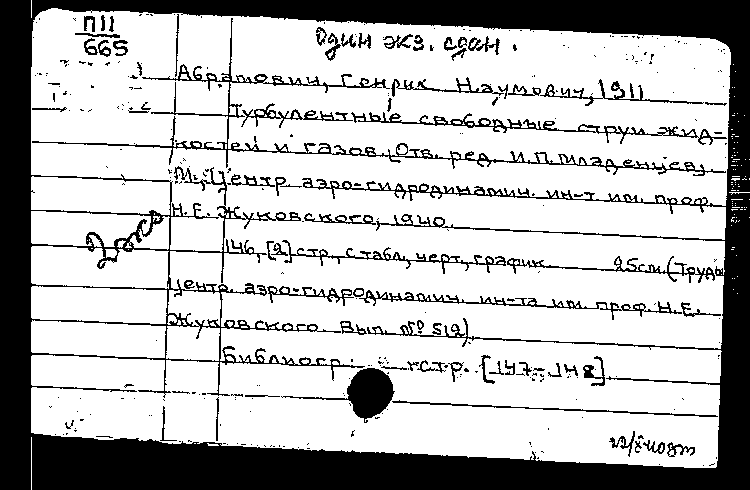 П11
665
Один экз. сдан.
Абрамович, Генрих Наумович, 1911
Турбулентные свободные струи жид-
костей и газов. [Отв. ред. И.П. Младенцев].
М., Центр. аэро-гидродинамич. ин-т им. проф.
Н.Е. Жуковского, 1940.
146, [2] стр., с табл., черт., график. 25 см. (Труды
Центр. аэро-гидродинамич. ин-та им. проф. Н.Е.
Жуковского. Вып. № 512).
Библиогр.: стр. [147-148].
2 экз